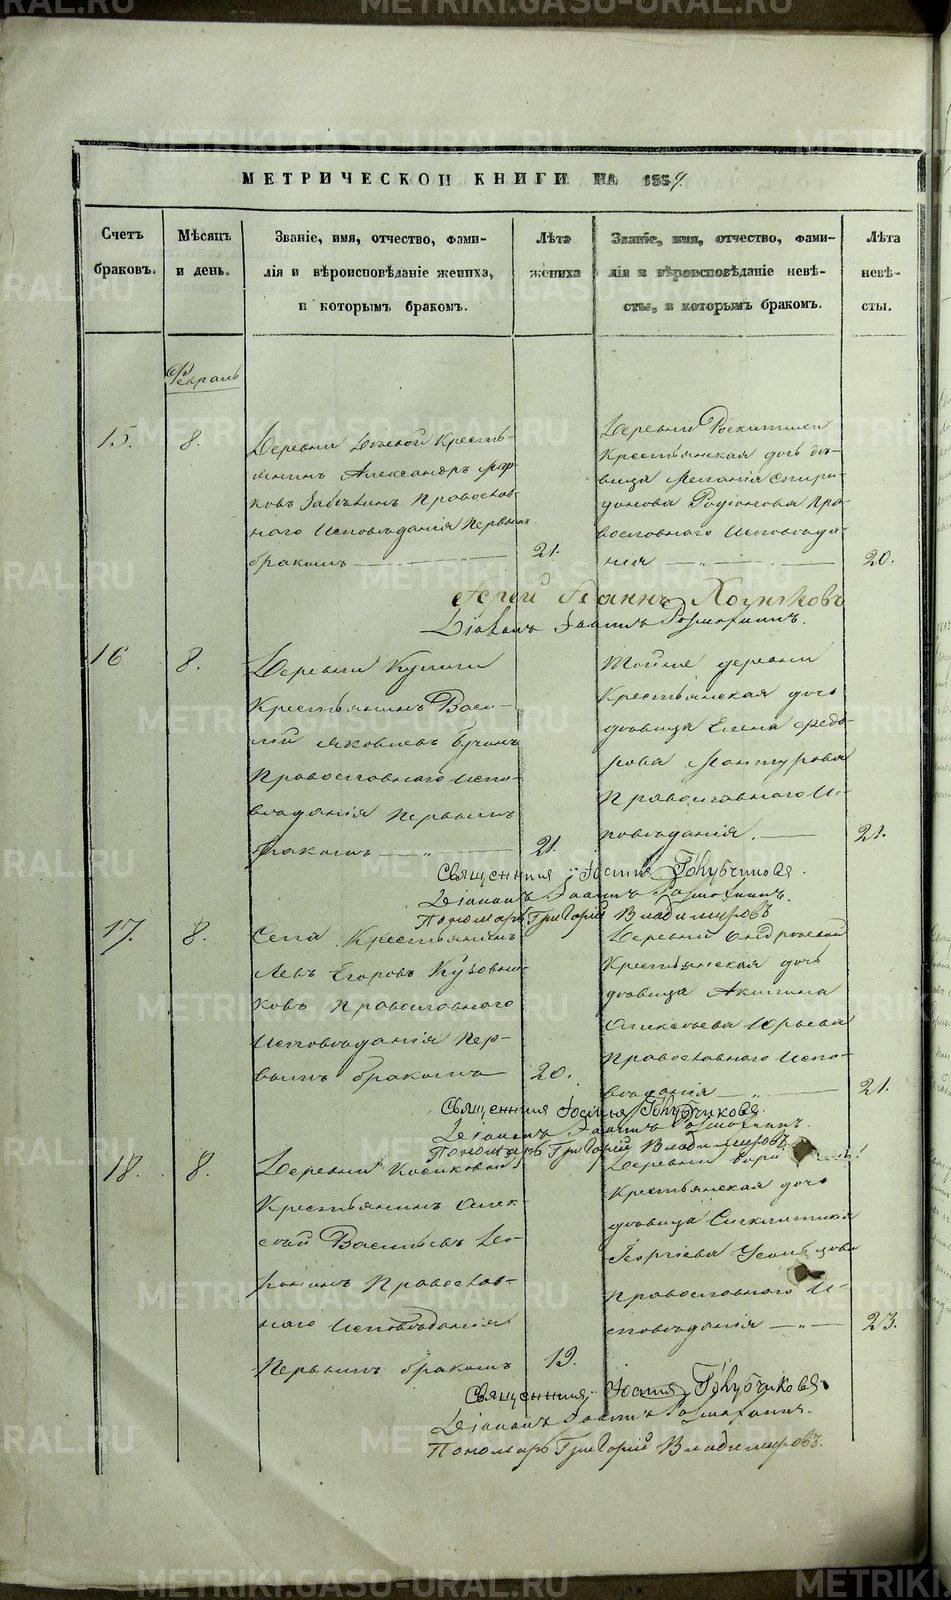 МЕТРИЧЕСКОЙ КНИГИ НА 1859.
Счетъ браковъ.
Мѣсяцъ и день.
Званіе, имя, отчество, фами-
лія и вѣроисповѣданіе жениха,
и которымъ бракомъ.
Лѣта жениха
Званіе, имя, отчество, фами-
лія и вѣроисповѣданіе невѣ-
сты, и которымъ бракомъ.
Лѣта невѣ-
сты.
Февраль
15. 8.
Деревни Крестья-
нинъ Александръ Мар-
ковъ Православ-
наго Исповѣданія Первымъ
бракомъ 21.
Деревни
Крестьянская дочь дѣ-
вица Меланія Спири-
донова Родіонова Пра-
вославнаго Исповѣда-
нія 20.
Іерей Іоаннъ Хохряковъ
Діаконъ Іоаннъ
16 8.
Деревни Кулиги
Крестьянинъ Васи-
лій Яковлевъ
Православнаго Испо-
вѣданія Первымъ
бракомъ 21.
Тойже деревни
Крестьянская дочь
дѣвица Елена Ѳедо-
рова Мантурова
Православнаго И-
повѣданія. 21.
Священникъ Голубчиковъ
Діаконъ Іоаннъ
Пономарь Григорій Владимировъ
17. 8.
Села Крестьянинъ
Левъ Егоровъ Кузовни-
ковъ Православнаго
Исповѣданія Пер-
вымъ бракомъ 20.
Деревни
Крестьянская дочь
дѣвица Акилина
Алексѣева Юрьева
Православнаго Испо-
вѣданія 21.
Священникъ Голубчиковъ
Діаконъ Іоаннъ
Пономарь Григорій Владимировъ
18. 8.
Деревни
Крестьянинъ Алек-
сѣй Васильевъ
Православ-
наго Исповѣданія
Первымъ бракомъ 19.
Деревни
Крестьянская дочь
дѣвица Синклитикія
Георгіева
Православнаго И-
сповѣданія 23.
Священникъ Голубчиковъ
Діаконъ Іоаннъ
Пономарь Григорій Владимировъ.
METRIKI.GASO-URAL.RU